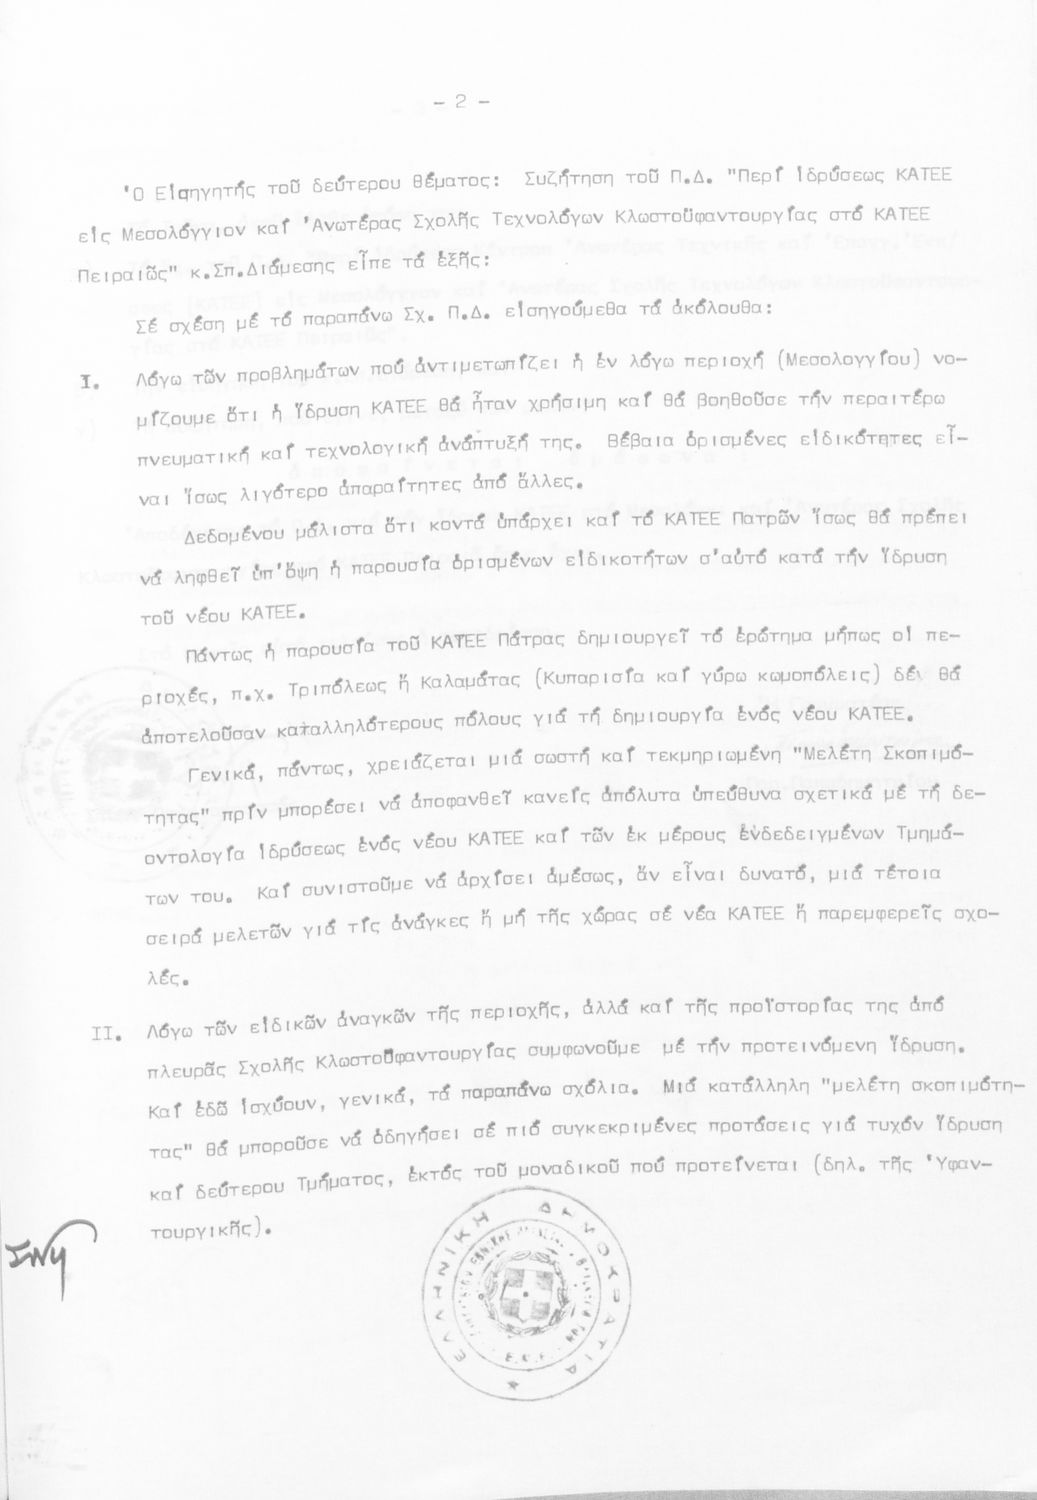 - 2 -
Ὁ Εἰσηγητής τοῦ δεύτερου θέματος: Συζήτηση τοῦ Π.Δ. "Περί ἱδρύσεως ΚΑΤΕΕ
εἰς Μεσολόγγιον καί Ἀνωτέρας Σχολῆς Τεχνολόγων Κλωστοϋφαντουργίας στό ΚΑΤΕΕ
Πειραιῶς" κ.Σπ.Διάμεσης εἶπε τά ἑξῆς:
Σέ σχέση μέ τό παραπάνω Σχ. Π.Δ. εἰσηγούμεθα τά ἀκόλουθα:
I. Λόγω τῶν προβλημάτων πού ἀντιμετωπίζει ἡ ἐν λόγω περιοχή (Μεσολογγίου) νο-
μίζουμε ὅτι ἡ ἵδρυση ΚΑΤΕΕ θά ἦταν χρήσιμη καί θά βοηθοῦσε τήν περαιτέρω
πνευματική καί τεχνολογική ἀνάπτυξή της. Βέβαια ὁρισμένες εἰδικότητες εἶ-
ναι ἴσως λιγότερο ἀπαραίτητες ἀπό ἄλλες.
Δεδομένου μάλιστα ὅτι κοντά ὑπάρχει καί τό ΚΑΤΕΕ Πατρῶν ἴσως θά πρέπει
νά ληφθεῖ ὑπ'ὄψη ἡ παρουσία ὁρισμένων εἰδικοτήτων σ'αὐτό κατά τήν ἵδρυση
τοῦ νέου ΚΑΤΕΕ.
Πάντως ἡ παρουσία τοῦ ΚΑΤΕΕ Πάτρας δημιουργεῖ τό ἐρώτημα μήπως οἱ πε-
ριοχές, π.χ. Τριπόλεως ἤ Καλαμάτας (Κυπαρισία καί γύρω κωμοπόλεις) δέν θά
ἀποτελοῦσαν καταλληλότερους πόλους γιά τή δημιουργία ἑνός νέου ΚΑΤΕΕ.
Γενικά, πάντως, χρειάζεται μιά σωστή καί τεκμηριωμένη "Μελέτη Σκοπιμό-
τητας" πρίν μπορέσει νά ἀποφανθεῖ κανείς ἀπόλυτα ὑπεύθυνα σχετικά μέ τή δε-
οντολογία ἱδρύσεως ἑνός νέου ΚΑΤΕΕ καί τῶν ἐκ μέρους ἐνδεδειγμένων Τμημά-
των του. Καί συνιστοῦμε νά ἀρχίσει ἀμέσως, ἄν εἶναι δυνατό, μιά τέτοια
σειρά μελετῶν γιά τίς ἀνάγκες ἤ μή τῆς χώρας σέ νέα ΚΑΤΕΕ ἤ παρεμφερεῖς σχο-
λές.
II. Λόγω τῶν εἰδικῶν ἀναγκῶν τῆς περιοχῆς, ἀλλά καί τῆς προϊστορίας της ἀπό
πλευρᾶς Σχολῆς Κλωστοϋφαντουργίας συμφωνοῦμε μέ τήν προτεινόμενη ἵδρυση.
Καί ἐδῶ ἰσχύουν, γενικά, τά παραπάνω σχόλια. Μιά κατάλληλη "μελέτη σκοπιμότη-
τας" θά μποροῦσε νά ὁδηγήσει σέ πιό συγκεκριμένες προτάσεις γιά τυχόν ἵδρυση
καί δεύτερου Τμήματος, ἐκτός τοῦ μοναδικοῦ πού προτείνεται (δηλ. τῆς Ὑφαν-
τουργικῆς).
ΕΛΛΗΝΙΚΗ ΔΗΜΟΚΡΑΤΙΑ